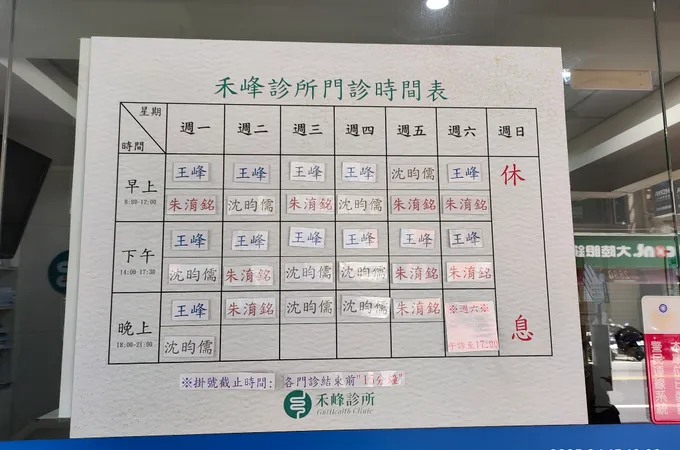 禾峰診所門診時間表
星期 時間 週一 週二 週三 週四 週五 週六 週日
早上 8:00-12:00 王峰 王峰 王峰 王峰 沈昀儒 王峰 休
朱淯銘 沈昀儒 朱淯銘 沈昀儒 朱淯銘 朱淯銘
下午 14:00-17:30 王峰 王峰 王峰 王峰 王峰 王峰
沈昀儒 朱淯銘 沈昀儒 沈昀儒 朱淯銘 朱淯銘
晚上 18:00-21:00 王峰 朱淯銘 沈昀儒 沈昀儒 朱淯銘 ※週六※ 午診至17:00 息
沈昀儒
※掛號截止時間: 各門診結束前"15分鐘"
禾峰診所
GutHealth Clinic
大陸眼鏡